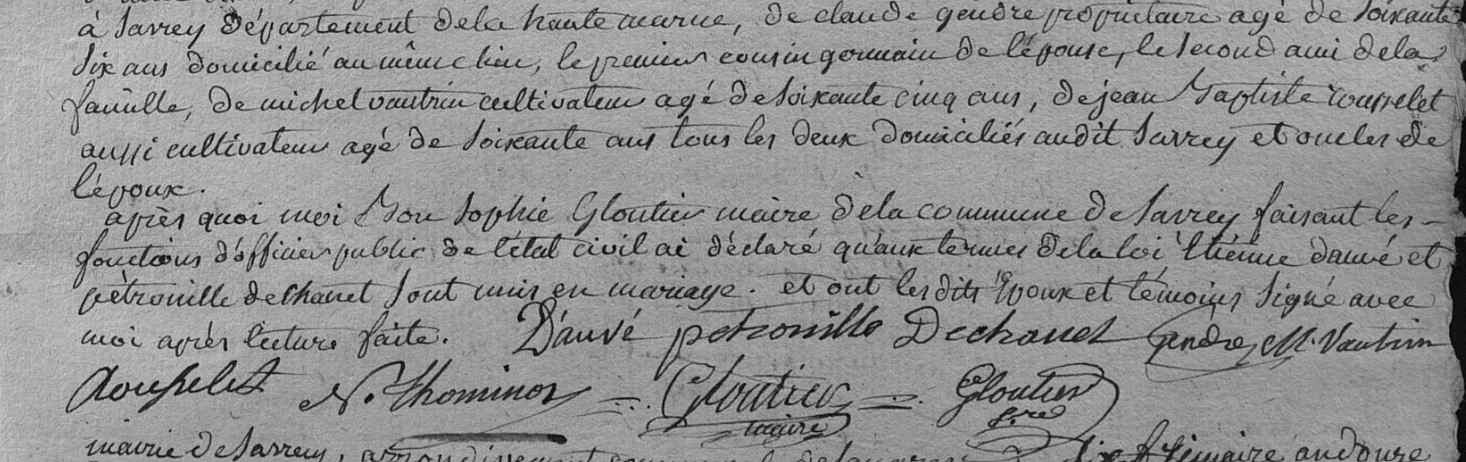 à Sarrey département de la haute marne, de claude gendre propriétaire agé de soixante
six ans domicilié au même lieu, le premier cousin germain de l'épouse, le second ami de la
famille, de michel vautrin cultivateur agé de soixante cinq ans, de jean Baptiste rousselet
aussi cultivateur agé de soixante ans tous les deux domiciliés audit Sarrey et oncles de
l'époux.
après quoi moi Sophie Gloutier maire de la commune de Sarrey faisant les
fonctions d'officier public de l'état civil ai déclaré qu'aux termes de la loi Etienne dauvé et
pétronille dechanet sont unis en mariage. et ont les dits Epoux et témoins signé avec
moi après lecture faite. Dauvé petronille Dechanet gendre M. Vautrin
Rousselet N. Thominot Gloutier maire Gloutier
mairie de Sarrey, arrondissement